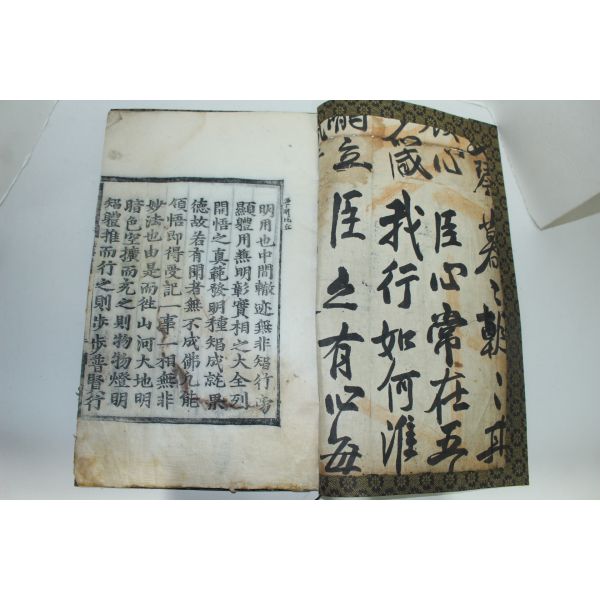 暮〻朝〻其
心臣心常在五
我行如何淮
立臣之有心每
明用也中間轍迹無非智行旁
顯體用兼明彰實相之大全列
開悟之真範發明種智成就果
德故若有聞者無不成佛凡能
領悟即得受記一事一相無非
妙法也由是而徃山河大地明
暗色空擴而充之則物物燈明
智體推而行之則步步普賢行